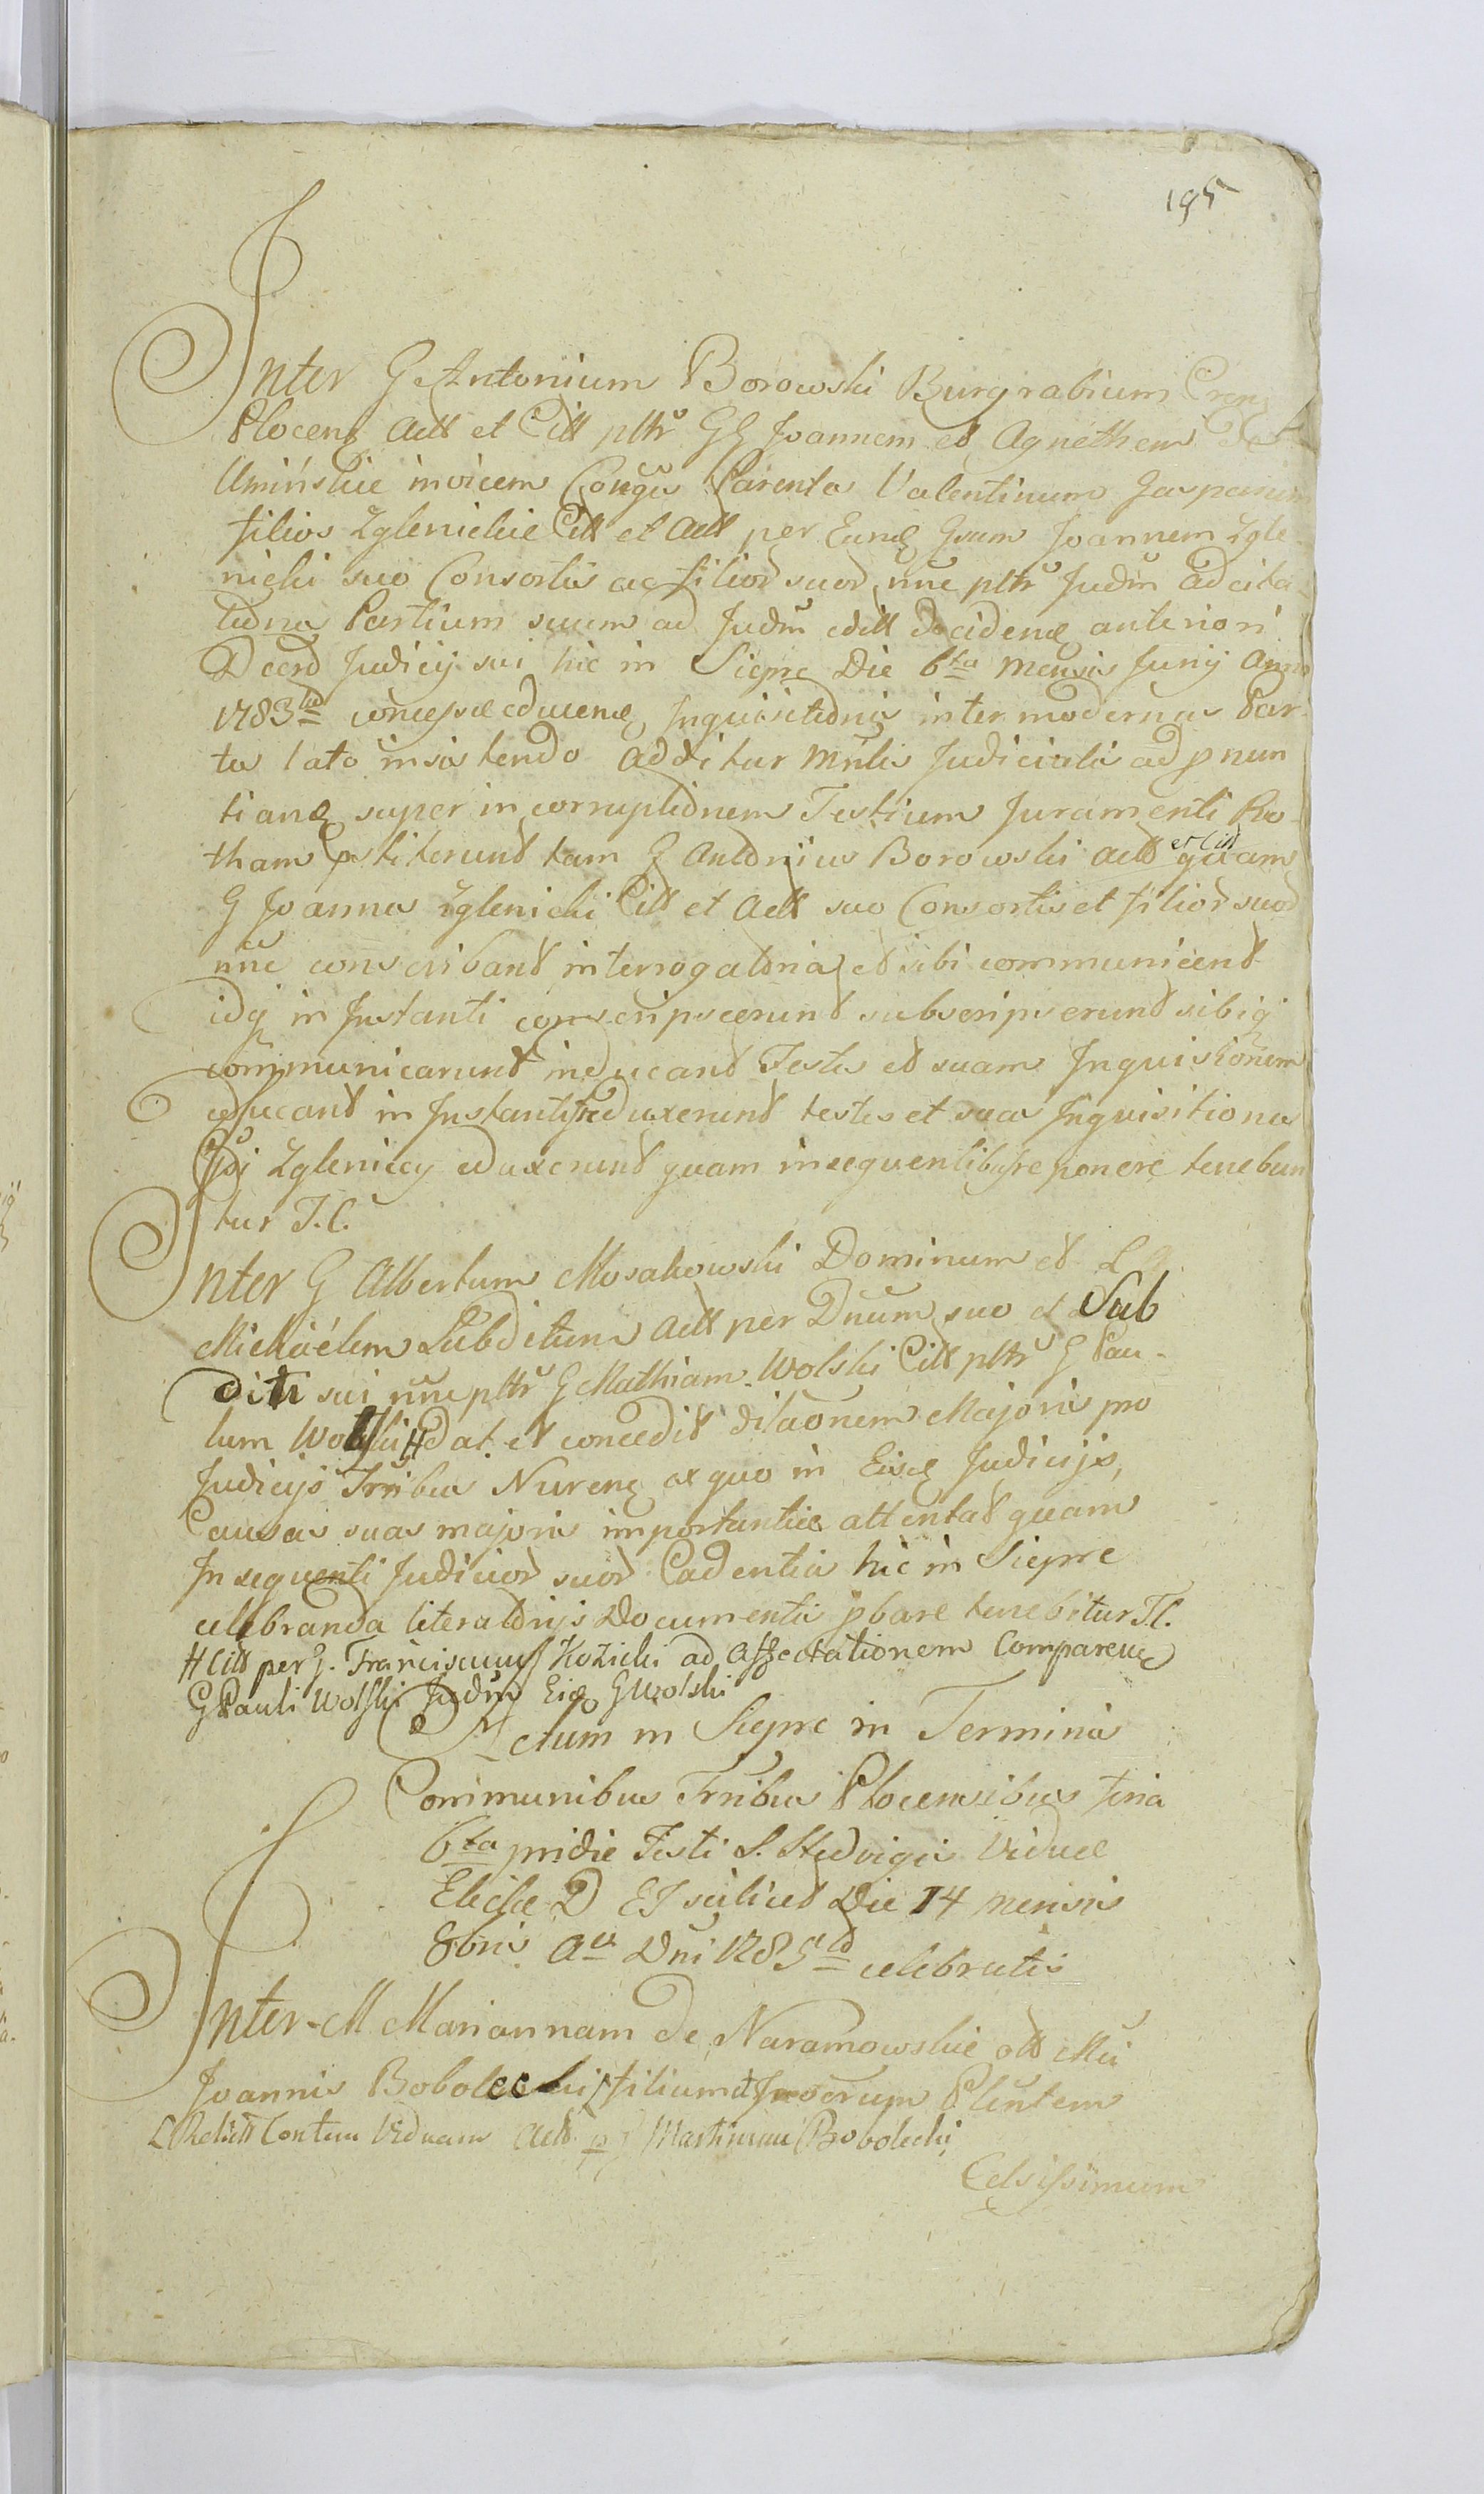 195
Inter G Antonium Borowski Burgrabium Cren
Plocen Actt et Citt pltr GG Joannem et Agnethem de
Umińskie invicem Conges Parentes Valentinum Gasparum
filios Zglenickie Citt et Actt per Eund Gsum Joannem Zgle-
nicki suo Consortis ac filior suor nne pltr Judm ad cita-
tiones Partium suum ad Judm edill decidend anteriori
Decro Judicij sui hic in Sieprc Die 6ta Mensis Junij Anno
1783tio concessae educend Inquisitionis inter modernas Par-
tes lato insistendo addit​ur Mntis Judicialis ad pnun
tiand super incorruptionem Testium Juramenti Ro-
tham pstiterunt tam G Antonius Borowski Actt et Citt quam
G Joannes Zglenicki Citt et Actt suo Consortis et filior suor
nne conscribant interrogatoria et sibi communicent
idq in Instanti conscripserunt subscripserunt sibiq
communicarunt inducant Testes et suam Inquisitionem
educant in Instanti induxerunt testes et suas Inquisitiones
Gsi Zgleniccy eduxerunt quam insequentibus reponere tenebun
tur T.C.
Inter G Albertum Mosakowski Dominum et L
Michaelem Subditum Actt per Dnum suo et Sub
diti sui nne pltr G Mathiam Wolski Citt pltr G Pau-
lum Wolski # dat et concedit dilaonem Majoris pro
Judicijs Trribus Nurens ex quo in Eisd Judicijs,
Causas suas majoris importantiae attentat quam
In sequenti Judicior suor Cadentia hic in Sieprc
celebranda literatorijs Documentis pbare tenebitur T.C.
# Citt per G. Franciscum Kozicki ad Affectationem Comparend
G Pauli Wolski Judm Eid G Wolski
Actum in Sieprc in Terminis
Communibus Trribus Plocensibus feria
6ta pridie Festi S. Hedvigis Viduae
Electae D ES scilicet Die 14 mensis
8bris Ao Dni 1785to celebratis
Inter M Mariannam de Naramowskie olt Mci
Joannis Bobolecki filium Plentem
Relictt Contem Viduam Actt p Martinum Bobolecki
Celsissimum